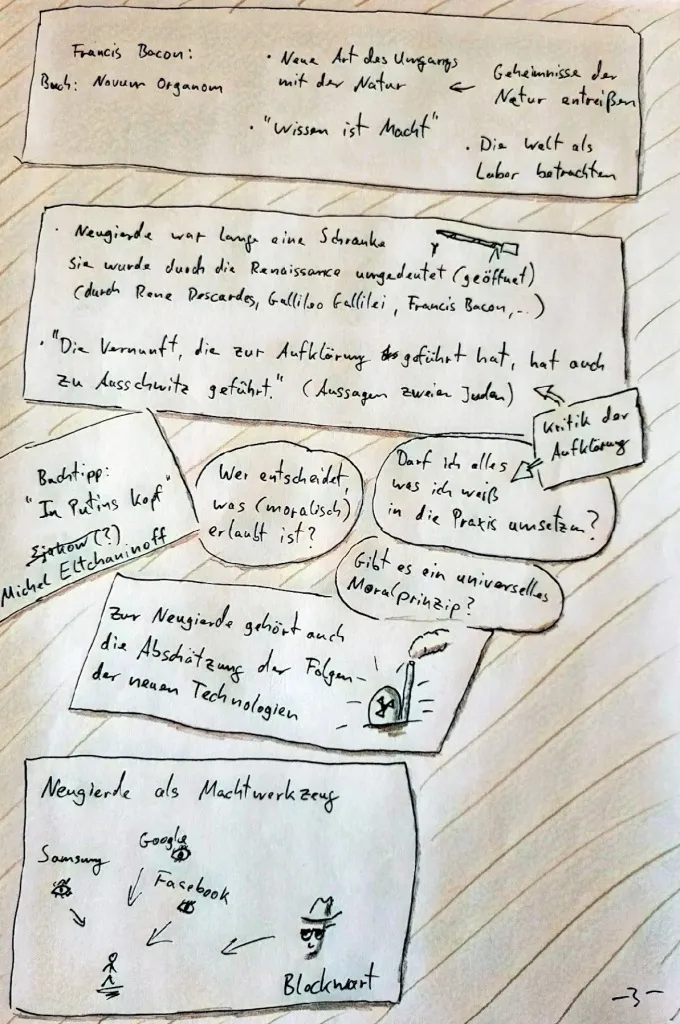 Francis Bacon:
Buch: Novum Organom
• Neue Art des Umgangs
mit der Natur
← Geheimnisse der
Natur entreißen
• "Wissen ist Macht"
• Die Welt als
Labor betrachten
• Neugierde war lange eine Schranke
Sie wurde durch die Renaissance umgedeutet (geöffnet)
(durch Rene Descardes, Gallileo Gallilei, Francis Bacon, ...)
• "Die Vernunft, die zur Aufklärung geführt hat, hat auch
zu Ausschwitz geführt." (Aussagen zweier Juden)
Kritik der
Aufklärung
Buchtipp:
"In Putins Kopf"
(?)
Michel Eltchaninoff
Wer entscheidet,
was (moralisch)
erlaubt ist?
Darf ich alles
was ich weiß
in die Praxis umsetzen?
Gibt es ein universelles
Moralprinzip?
Zur Neugierde gehört auch
die Abschätzung der Folgen
der neuen Technologien
Neugierde als Machtwerkzeug
Samsung
Google
Facebook
Blockwart
-3-